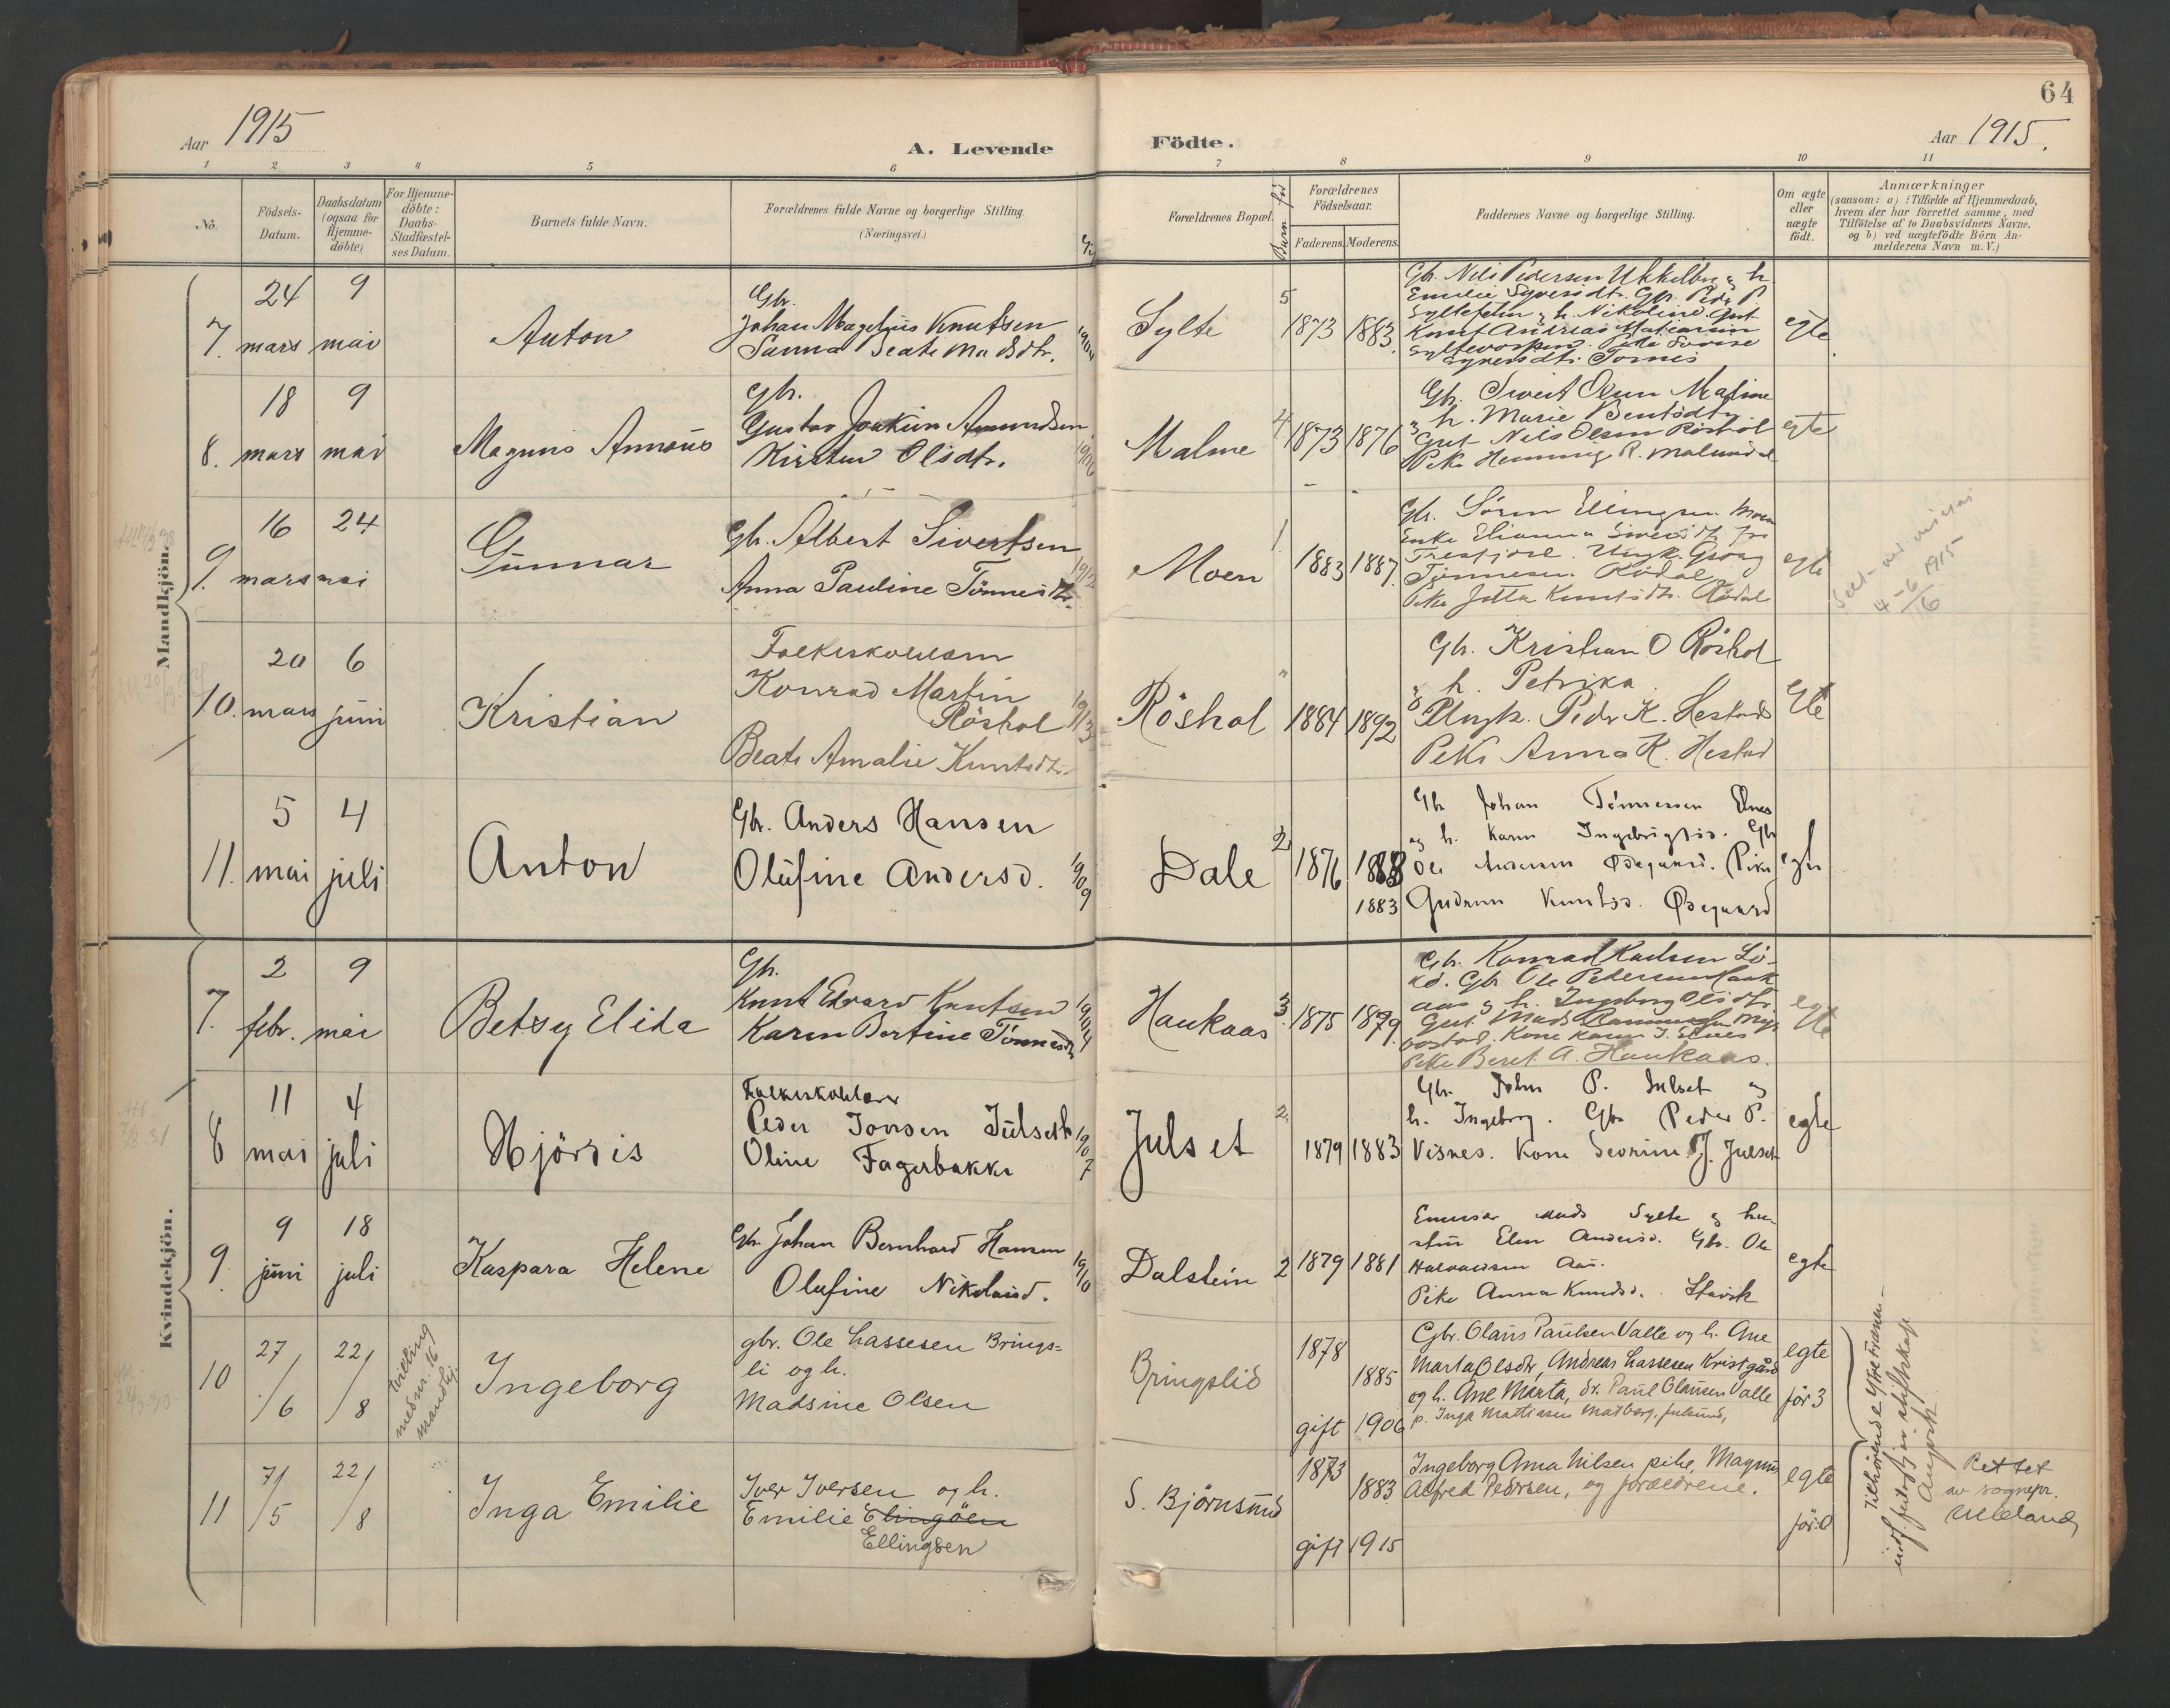 64
Aar 1915
A. Levende
Födte.
Aar 1915.
1 2 3 4 5 6 7 8 9 10 11
No.
Födsels-
Datum.
Daabsdatum
(ogsaa for
Hjemme-
döbte)
For Hjemme-
döbte:
Daabs-
Stadfæstel-
ses Datum.
Barnets fulde Navn.
Forældrenes fulde Navne og borgerlige Stilling.
(Næringsvei.)
Forældrenes Bopæl.
Barn för
Forældrenes
Födselsaar.
Faderens.
Moderens.
Faddernes Navne og borgerlige Stilling.
Om ægte
eller
uægte
födt.
Anmærkninger
(saasom: a) i Tilfælde af Hjemmedaab,
hvem der har forrettet samme, med
Tilföielse af to Daabsvidners Navne.
og b) ved uægtefödte Börn An-
melderens Navn m. V.)
Mandkjön.
7.
24
mars
9
mai
Anton
Gbr.
Johan Magelius Knutsen
Sanna Beate
Sylte
5
1873
1883
Gbr. Nils Pedersen
egte
8.
18
mars
9
mai
Magnus
Gbr.
Gustav Joakim Amundsen
Kirsten Olsdtr.
1900
Malme
4
1873
1876
Gbr. Sivert Olsen Malme
og h. Marie Bentsdtr.
Gut Nils Olsen Röshol
egte
9.
16
mars
24
mai
Gunnar
Gbr. Albert Sivertsen
Anna Pauline Tönnesdtr.
1912
Moen
1
1883
1887
Gbr. Sören Ellingsen Moen
Enke Elianna Siversdtr. fra
Tresfjord. Ungk. Georg
Tönnesen Rödal
Pike Jetta Knutsdtr. Rödal
egte
4-6 1915
10.
20
mars
6
juni
Kristian
Folkeskolelærer
Konrad Martin
Röshol
Beate Amalie Knutsdtr.
1913
Röshol
"
1884
1892
Gbr. Kristian O Röshol
og h. Petrika
Ungk. Peder K. Hestad
Pike Anna K. Hestad
Egte
11.
5
mai
4
juli
Anton
Gbr. Anders Hansen
Olufine Andersd.
1909
Dale
2
1876
1883
1883
Gbr Johan Tönnessen Elnes
og h. Karen Ingebrigtsd. Gbr
Ole Andersen Ödegaard. Pike
Gudrun Knutsd. Ödegaard
egte
Kvindekjön.
7.
2
febr.
9
mai
Betsy Elida
Gbr.
Knut Edvard Knutsen
Karen Bertine Tönnesdtr
1904
Haukaas
3
1875
1879
Gbr. Konrad Karlsen Lö-
kd. Gbr Ole Pedersen Hauk
aas og h. Ingeborg Olsdtr.
Kone Karen J. Elnes
Pike Beret A. Haukaas.
egte
8
11
mai
4
juli
Hjördis
Folkeskolelærer
Peder Jonsen Julseth
Oline Fagerbakke
1907
Julset
2
1879
1883
Gbr. John P. Julset og
h. Ingeborg. Gbr Peder P.
Visnes. Kone Severine J. Julset
egte
9.
9
juni
18
juli
Kaspara Helene
Gbr. Johan Bernhard Hansen
Olufine Nikolaisd.
1910
Dalstein
2
1879
1881
Emissær Mads Sylte og hu-
stru Elen Andersd. Gbr. Ole
Halvorsen Aas.
Pike Anna Knudsd. Stavik
egte
10
27/6
22/8
tvilling
med nr. 16
mandkj.
Ingeborg
gbr. Ole Lassesen Brings-
li og h.
Madsine Olsen
Bringslid
1878
1885
gift 1906
Gbr. Olaus Paulsen Valle og h. Ane
Marta Olsdtr, Andreas Lassesen Kristgård
og h. Ane Marta, dr. Paul Olausen Valle
p. Inga Mattiasen Malberg, Julsund,
egte
för 3
11
7/5
22/8
Inga Emilie
Iver Iversen og h.
Emilie Elingsen
Ellingsen
S. Björnsund
1873
1883
gift 1915
Ingeborg Anna Nilsen pike, Magnus
Alfred Pedersen, og forældrene.
egte
för: 0
Tilhörende Ytre Fræna -
Rettet
av sognepr.